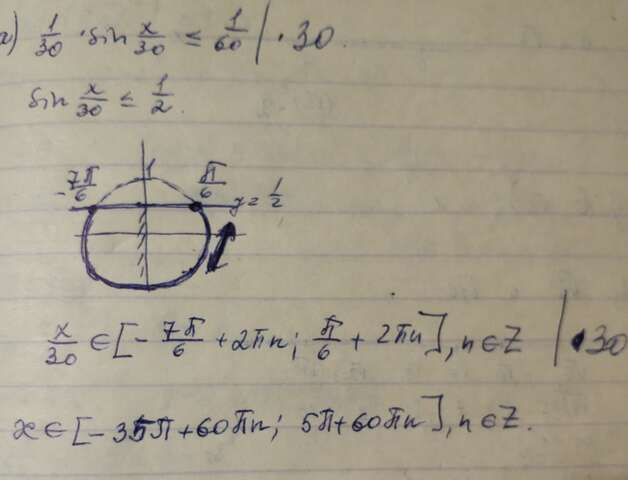 а) 1/30 · sin x/30 ≤ 1/60 | · 30.
sin x/30 ≤ 1/2.
1
-7π/6
π/6
y = 1/2
x/30 ∈ [-7π/6 + 2πn; π/6 + 2πn], n ∈ Z | · 30
x ∈ [-35π + 60πn; 5π + 60πn], n ∈ Z.